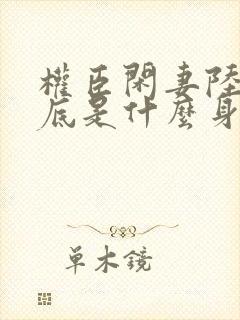 權臣閑妻陸
底是什麼身
單木鏡